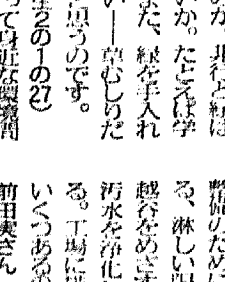 か、非行と緑は
いか。たとえば学
また、緑を手入れ
い――草むしりだ
思うのです。
2の1の27)
て身近な環境問
備のために
る、淋しい
越谷をめざす
汚水を浄化
る。工場に
いくつある
前田実さん